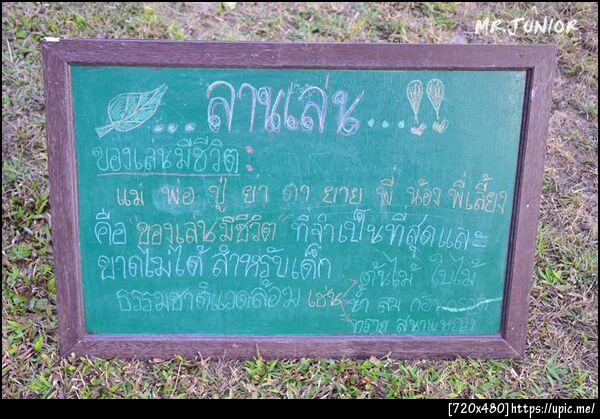 MR.JUNIOR
... ลานเล่น ...!!
ของเล่นมีชีวิต :
แม่ พ่อ ปู่ ย่า ตา ยาย พี่ น้อง พี่เลี้ยง
คือ ของเล่นมีชีวิต ที่จำเป็นที่สุดและ
ขาดไม่ได้ สำหรับเด็ก
ต้นไม้ ใบไม้
ธรรมชาติแวดล้อม เช่น
น้ำ ลม ก้อน
ทราย สนามหญ้า
[720x480]https://upic.me/